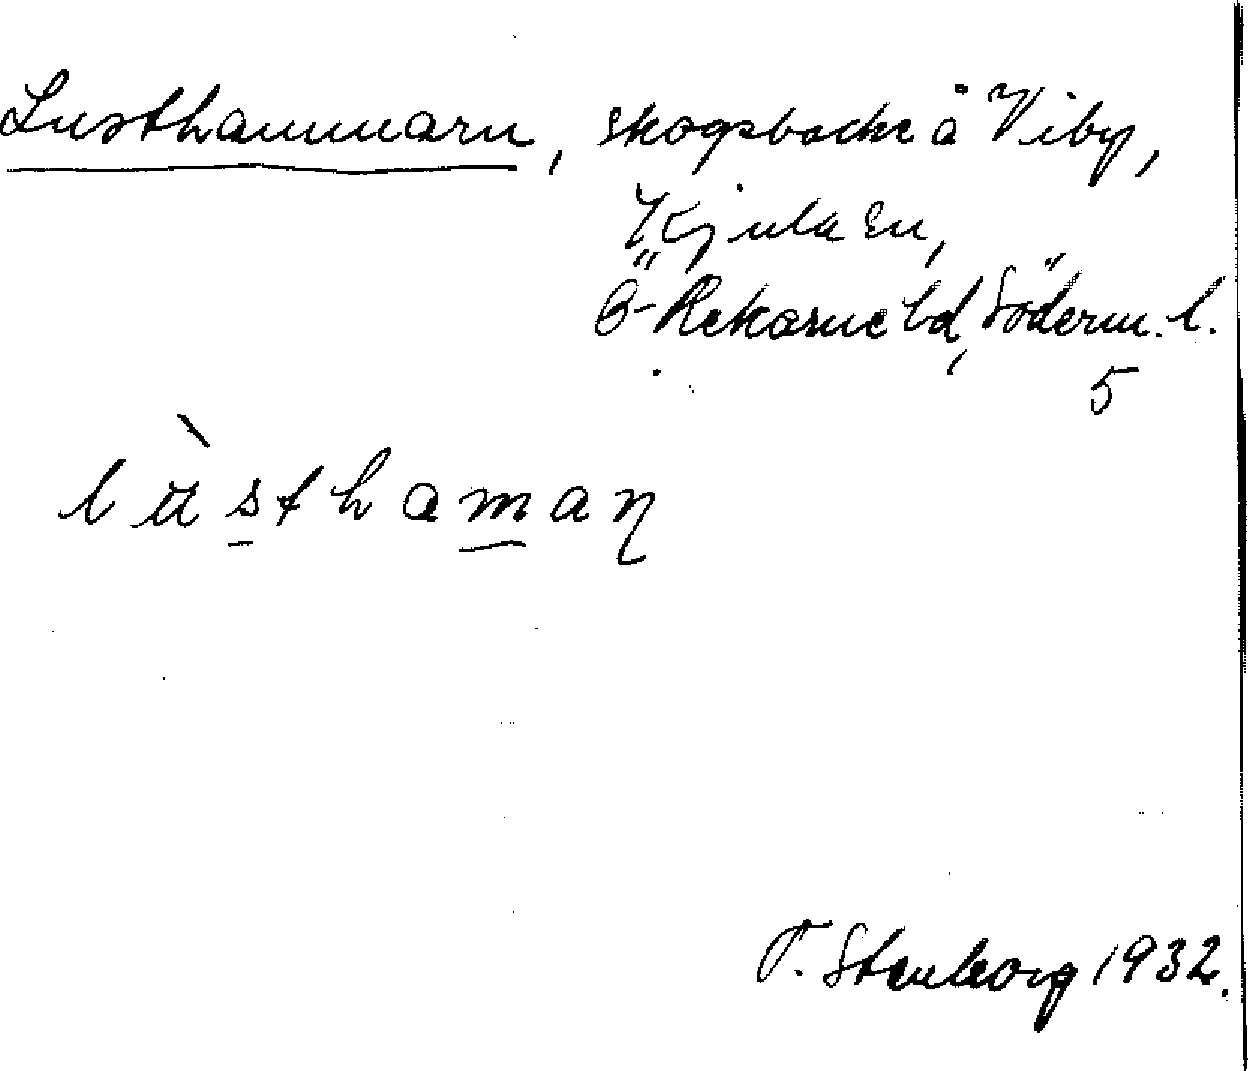 Lusthammarn, skogsbacke å Viby,
Kjula sn,
Ö-Rekarne hd, Söderm. l.
5
lùsthamaɳ
T. Stenborg 1932.